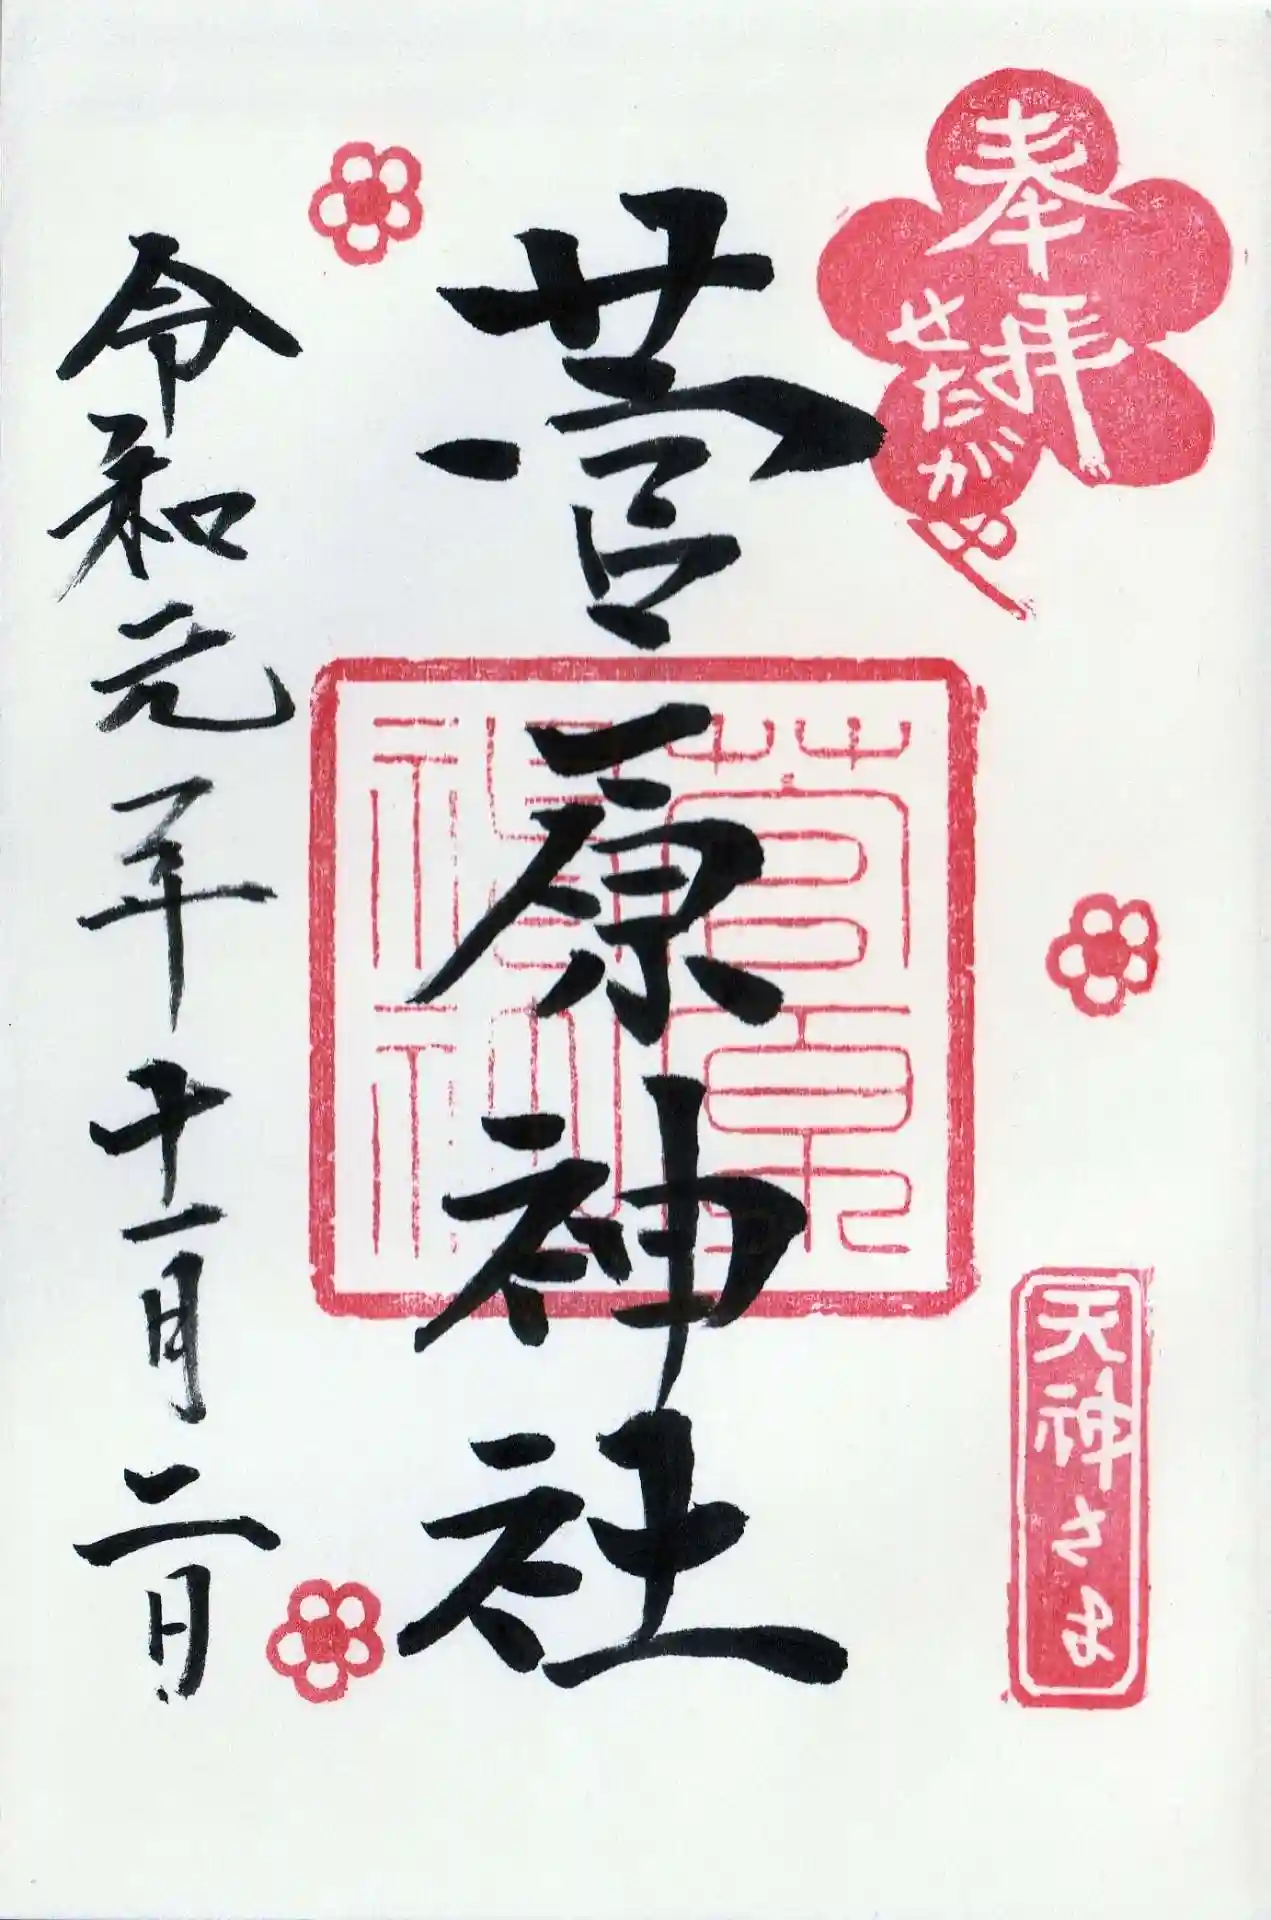 奉拝
せたがや
天神さま
菅原神社
菅原
神社
令和元年十一月二日